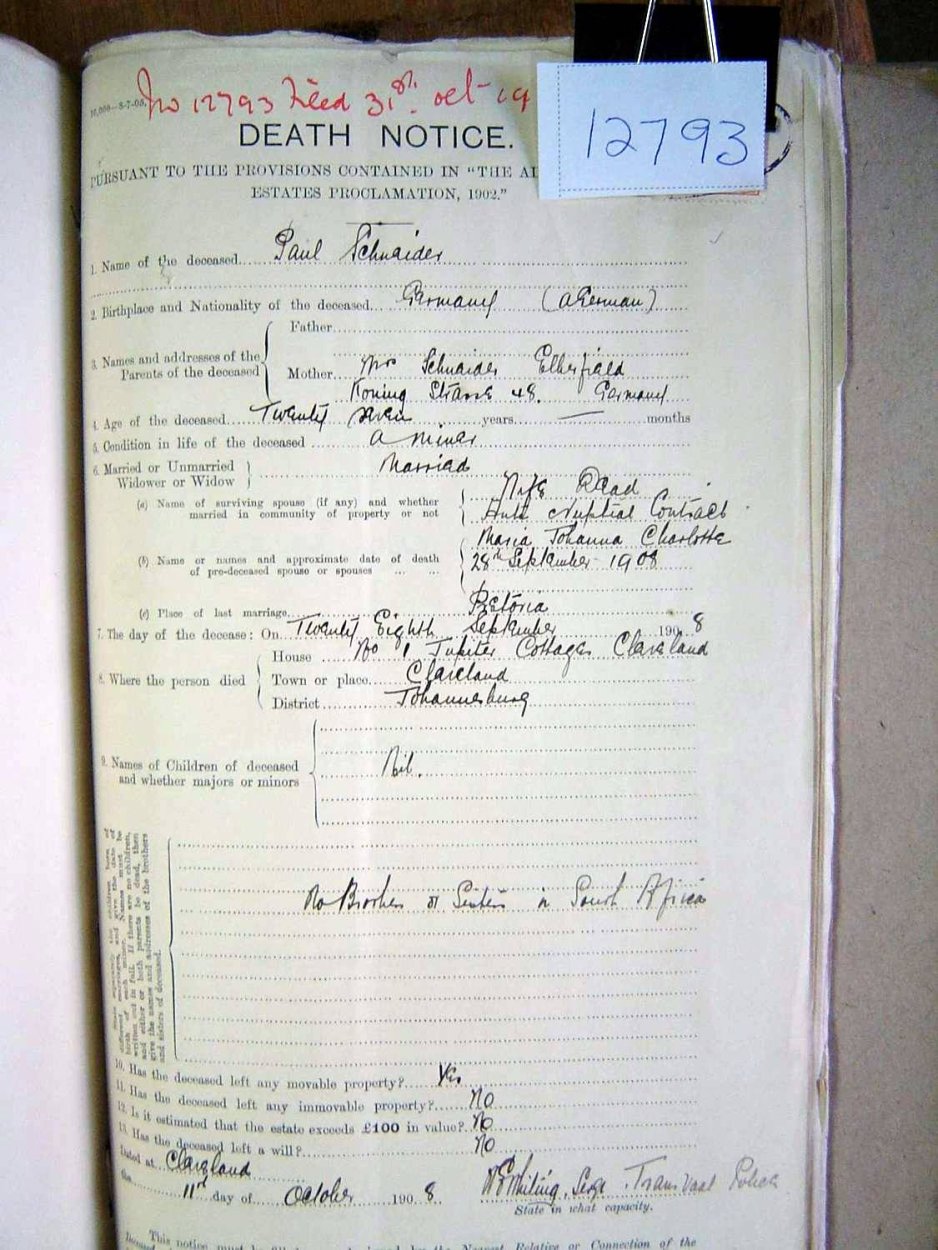 12793
10,000—8-7-05.
No 12793 Filed 31st. Oct-19
DEATH NOTICE.
PURSUANT TO THE PROVISIONS CONTAINED IN "THE
ESTATES PROCLAMATION, 1902."
1. Name of the deceased Paul Schnaider
2. Birthplace and Nationality of the deceased Germany (a German)
3. Names and addresses of the Parents of the deceased
Father
Mother Mrs Schnaider Elberfield
Koning Strasse 48. Germany
4. Age of the deceased Twenty seven years — months
5. Condition in life of the deceased a miner
6. Married or Unmarried
Widower or Widow
Married
(a) Name of surviving spouse (if any) and whether
married in community of property or not
Wife Dead
Anti nuptial Contract
(b) Name or names and approximate date of death
of pre-deceased spouse or spouses ... ...
Maria Johanna Charlotte
28th September 1908
(c) Place of last marriage Pretoria
7. The day of the decease: On Twenty Eighth September 1908
8. Where the person died
House No 1 Jupiter Cottages Cleveland
Town or place Cleveland
District Johannesburg
9. Names of Children of deceased
and whether majors or minors
Nil.
different marriages, and give the date of
birth of each minor. Names must be
written out in full. If there are no children,
and either or both parents be dead, then
give the names and addresses of the brothers
and sisters of deceased.
No Brothers or Sisters in South Africa
10. Has the deceased left any movable property? Yes
11. Has the deceased left any immovable property? No
12. Is it estimated that the estate exceeds £100 in value? No
13. Has the deceased left a will? No
Dated at Cleveland
the 11th day of October 1908
Whiting. Sergt Transvaal Police
State in what capacity.
This notice must be Nearest Relative or Connection of the